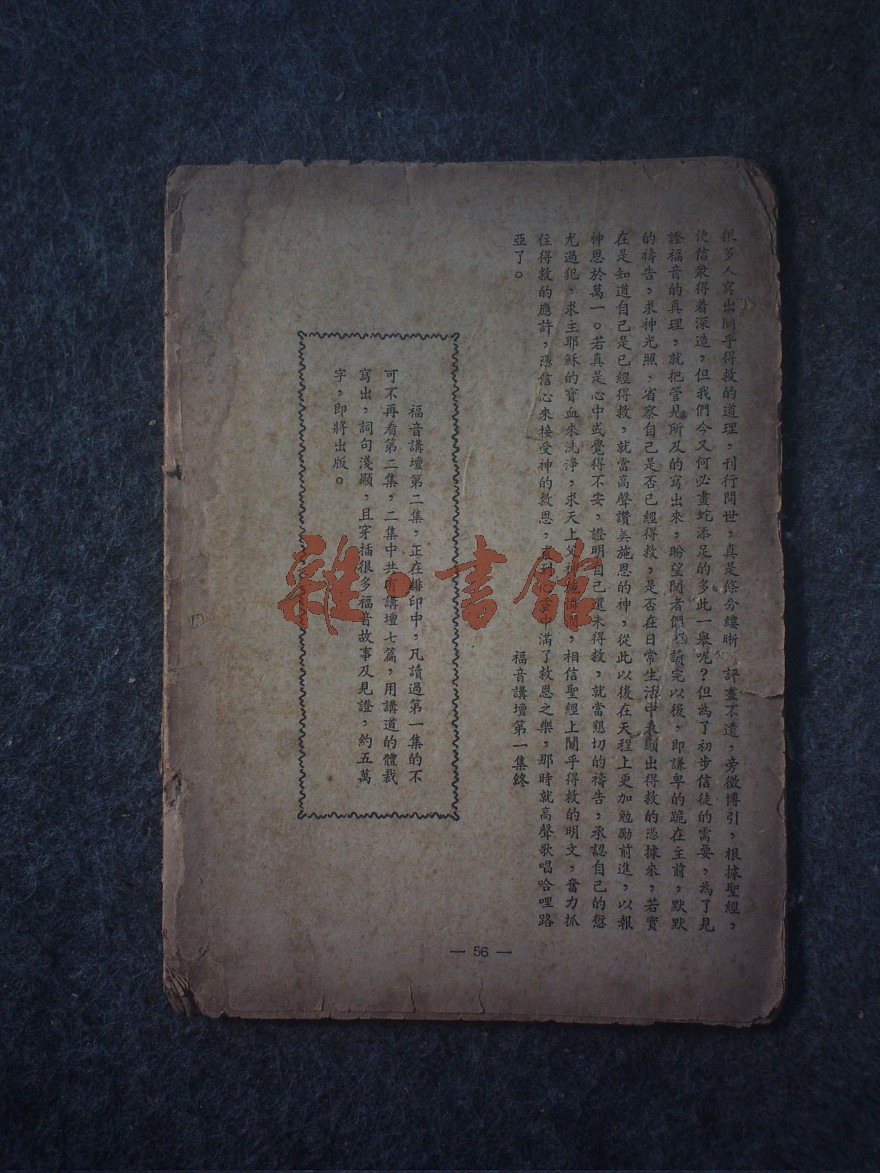 很多人寫出關乎得救的道理，刊行問世，真是條分縷晰 評盡不遺，旁徵博引，根據聖經，
使信衆得着深造，但我們今又何必畫蛇添足的多此一舉呢？但為了初步信徒的需要，為了見
證福音的真理，就把管見所及的寫出來，盼望閱者們 讀完以後，即謙卑的跪在主前，默默
的禱告，求神光照、省察自己是否已經得救，是否在日常生活中表顯出得救的憑據來，若實
在是知道自己是已經得救，就當高聲讚美施恩的神，從此以後在天程上更加勉勵前進，以報
神恩於萬一。若真是心中或覺得不安，證明自己還未得救，就當懇切的禱告，承認自己的愆
尤過犯、求主耶穌的寶血來洗淨，求天上父神 相信聖經上關乎得救的明文，奮力抓
住得救的應許，憑信心來接受神的救恩， 滿了救恩之樂，那時就高聲歌唱哈哩路
亞了。
福音講壇第一集終
福音講壇第二集，正在排印中，凡讀過第一集的不
可不再看第二集，二集中共有講壇七篇，用講道的體裁
寫出，詞句淺顯，且穿插很多福音故事及見證，約五萬
字，即將出版。
— 56 —
雜·書館